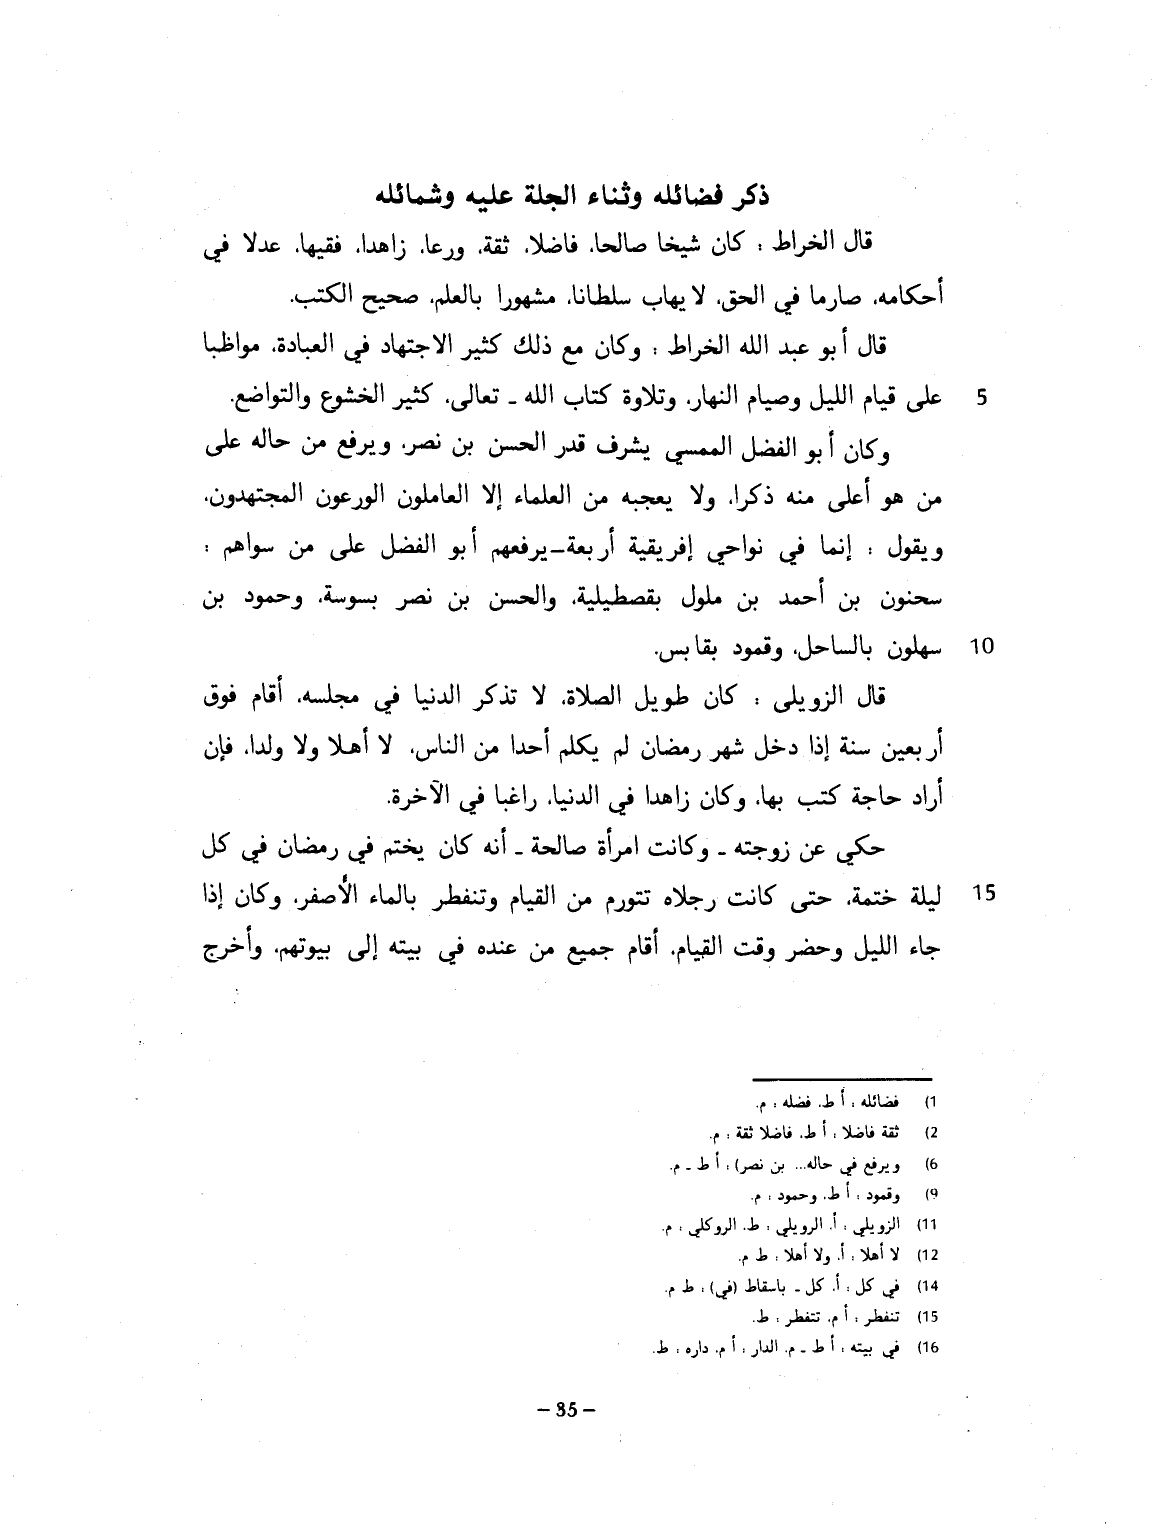 ذكر فضائله وثناء الجلة عليه وشمائله
قال الخراط : كان شيخا صالحا، فاضلا، ثقة، ورعا، زاهدا، فقيها، عدلا في
أحكامه، صارما في الحق، لا يهاب سلطانا، مشهورا بالعلم، صحيح الكتب.
قال أبو عبد الله الخراط : وكان مع ذلك كثير الاجتهاد في العبادة، مواظبا
5 على قيام الليل وصيام النهار، وتلاوة كتاب الله ـ تعالى، كثير الخشوع والتواضع.
وكان أبو الفضل الممسي يشرف قدر الحسن بن نصر، ويرفع من حاله على
من هو أعلى منه ذكرا، ولا يعجبه من العلماء إلا العاملون الورعون المجتهدون،
ويقول : إنما في نواحي إفريقية أربعة ـ يرفعهم أبو الفضل على من سواهم :
سحنون بن أحمد بن ملول بقصطيلية، والحسن بن نصر بسوسة، وحمود بن
10 سهلون بالساحل، وقمود بقابس.
قال الزويلي : كان طويل الصلاة، لا تذكر الدنيا في مجلسه، أقام فوق
أربعين سنة إذا دخل شهر رمضان لم يكلم أحدا من الناس، لا أهلا ولا ولدا، فإن
أراد حاجة كتب بها، وكان زاهدا في الدنيا، راغبا في الآخرة.
حكي عن زوجته ـ وكانت امرأة صالحة ـ أنه كان يختم في رمضان في كل
15 ليلة ختمة، حتى كانت رجلاه تتورم من القيام وتنفطر بالماء الأصفر، وكان إذا
جاء الليل وحضر وقت القيام، أقام جميع من عنده في بيته إلى بيوتهم، وأخرج
1) فضائله : أ ط، فضله : م.
2) ثقة فاضلا : أ ط، فاضلا ثقة : م.
6) ويرفع في حاله... بن نصر) : أ ط ـ م.
9) وقمود : أ ط، وحمود : م.
11) الزويلي : أ، الرويلي : ط، الروكلي : م.
12) لا أهلا : أ، ولا أهلا : ط م.
14) في كل : أ، كل ـ باسقاط (في) : ط م.
15) تنفطر : أ م، تتفطر : ط.
16) في بيته : أ ط ـ م، الدار : أ م، داره : ط.
– 35 –